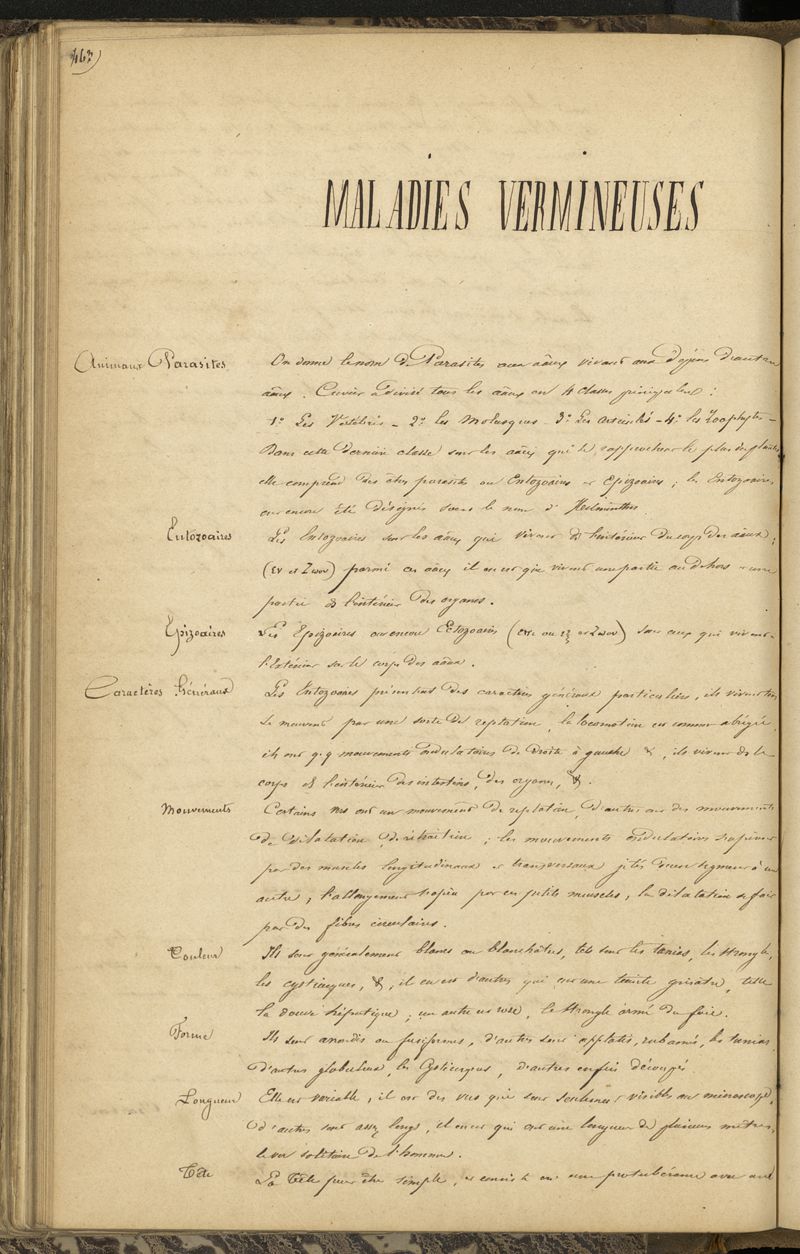 463
MALADIES VERMINEUSES
Animaux Parasites
On donne le nom de Parasites aux aaux vivant aux dépens d'autres
aaux. Cuvier a divisé tous les aaux en 4 classes principales :
1° Les Vertébrés - 2° les Molusques - 3° Les articulés - 4° les Zoophytes -
Dans cette dernière classe sont les aaux qui se rapprochent le plus des plantes
elle comprend des êtres parasites ou Entozoaires et Epizoaires ; les Entozoaires
ont encore été désignés sous le nom d'Helminthes
Entozoaires
Les Entozoaires sont les aaux qui vivent ds l'intérieur du corps des aaux ;
(εν et Ζωον) parmi ces aaux il en est qui vivent une partie au dehors et une
partie ds l'intérieur des organes.
Epizoaires
Les Epizoaires ou encore Ectozoaires (επι ou εξ et Ζωον) sont ceux qui vivent
l'Extérieur sur le corps des aaux.
Caractères Généraux
Les Entozoaires présentent des caractères généraux particuliers, ils vivent
se meuvent par une sorte de reptation, la locomotion est comme abrégée
ils ont q.q mouvements ondulatoires de droite à gauche &, ils vivent ds le
corps ds l'intérieur des intestins, des organes, &.
Mouvements
Certains vers ont un mouvement de reptation, d'autres ont des mouvements
de dilatation, de rétraction ; les mouvements ondulatoires s'opèrent
par des muscles longitudinaux et transversaux jetés d'un segment à un
autre, l'allongement s'opère par ces petits muscles, la dilatation se fait
par des fibres circulaires.
Couleur
Ils sont généralement blancs ou blanchâtres, tels sont les tænias, les strongles,
les cysticerques, &, il en est d'autres qui ont une teinte grisâtre, telle
la douve hépatique ; un autre est rosé, le strongle armé du foie.
Forme
Ils sont arrondis ou fusiformes, d'autres sont applatis, rubannés, les tænias
d'autres globuleux, les Cysticerques, d'autres enfin découpés.
Longueur
Elle est variable, il est des vers qui sont seulement visibles au microscope,
d'autres sont assez longs, il en est qui ont une longueur de plusieurs mètres,
le ver solitaire de l'homme.
Tête
La Tête peut être simple, et consiste en une protubérance avec une